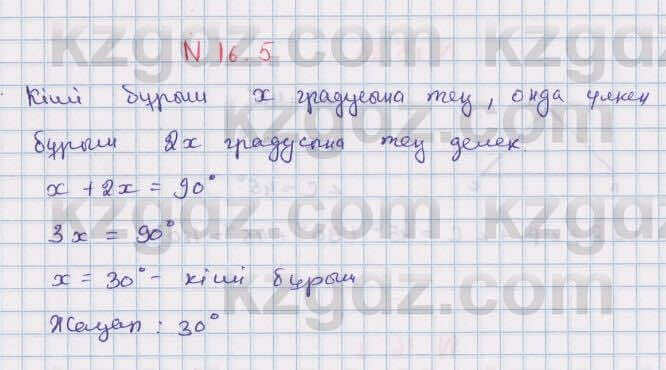 N 16.5
Кіші бұрыш x градусына тең, онда үлкен
бұрыш 2x градусына тең делек.
x + 2x = 90°
3x = 90°
x = 30° - кіші бұрыш
Жауап: 30°
kzgdz.com
kzgdz.com
kzgdz.com
kzgdz.com